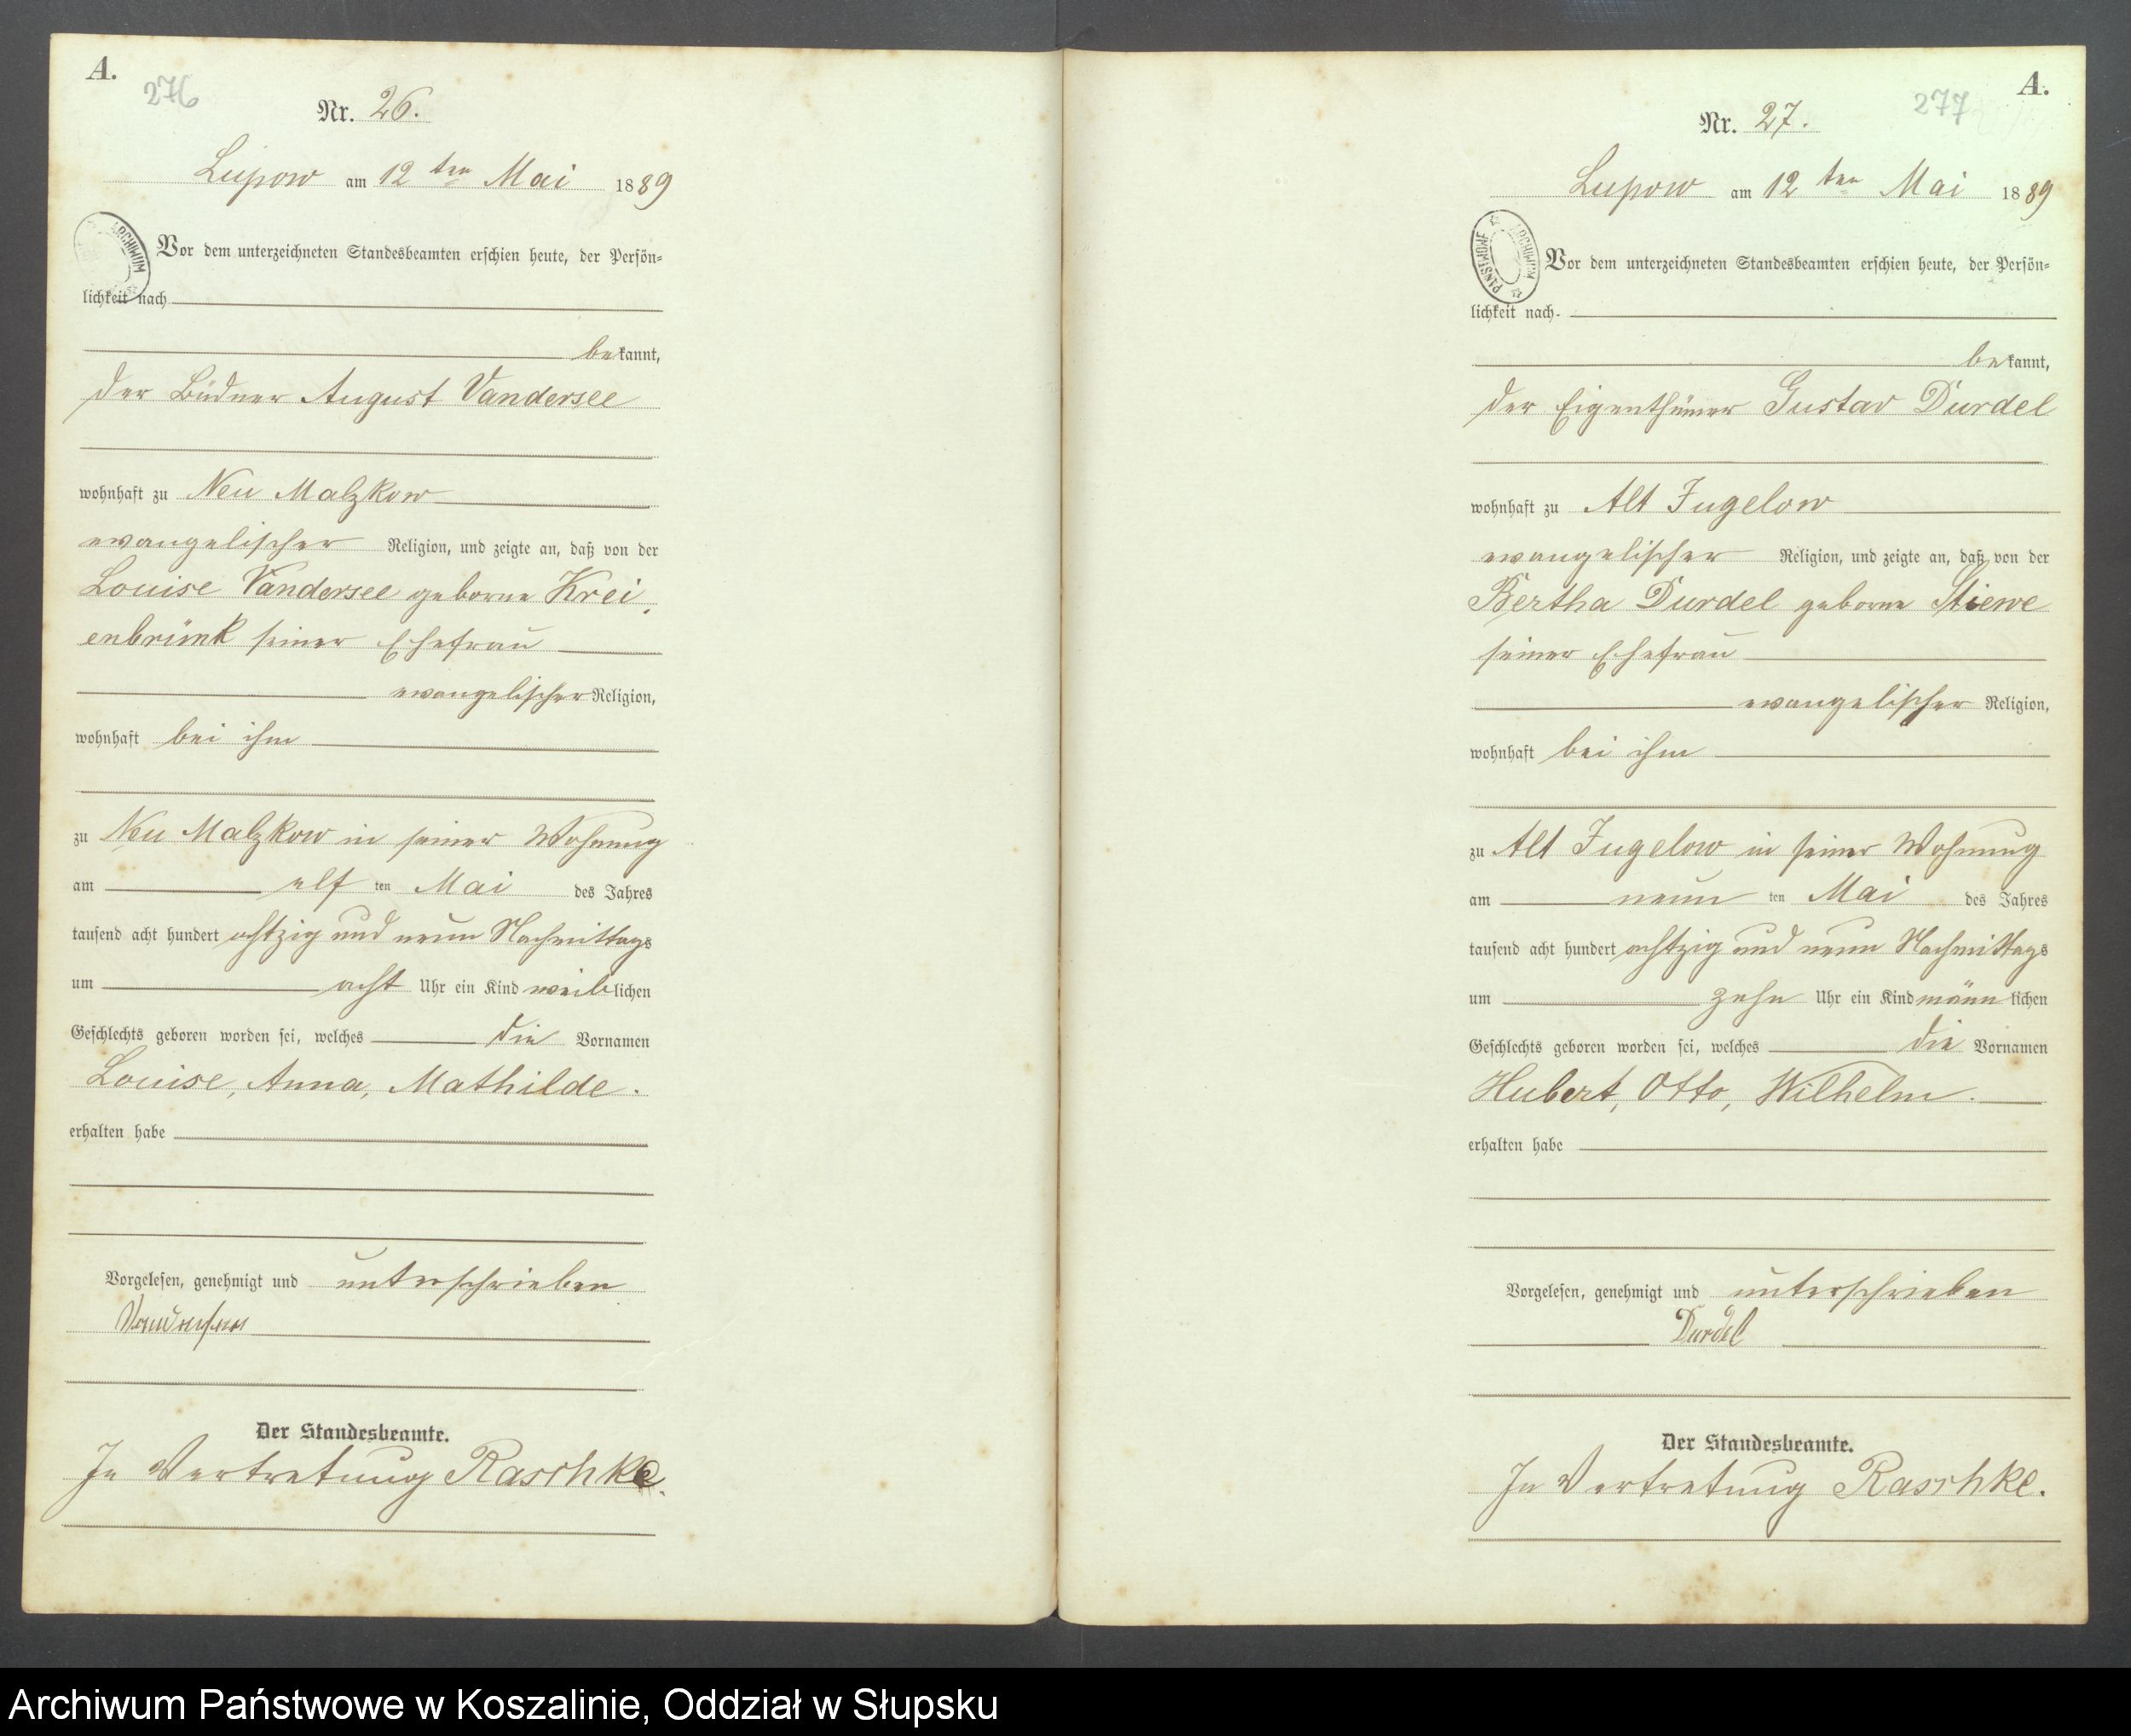 A.
276
Nr. 26.
Lupow am 12ten Mai 1889
ARCHIWUM
Vor dem unterzeichneten Standesbeamten erschien heute, der Persön=
lichkeit nach
bekannt,
der Büdner August Vandersee
wohnhaft zu Neu Malzkow
evangelischer Religion, und zeigte an, daß von der
Louise Vandersee geborne Krei-
enbrink seiner Ehefrau
evangelischer Religion,
wohnhaft bei ihm
zu Neu Malzkow in seiner Wohnung
am elf ten Mai des Jahres
tausend acht hundert achtzig und neun Nachmittags
um acht Uhr ein Kind weiblichen
Geschlechts geboren worden sei, welches die Vornamen
Louise, Anna, Mathilde.
erhalten habe
Vorgelesen, genehmigt und unterschrieben
Der Standesbeamte.
In Vertretung Raschke.
A.
277
Nr. 27.
Lupow am 12ten Mai 1889
PANSTWOWE ARCHIWUM
Vor dem unterzeichneten Standesbeamten erschien heute, der Persön=
lichkeit nach
bekannt,
der Eigenthümer Gustav Durdel
wohnhaft zu Alt Jugelow
evangelischer Religion, und zeigte an, daß von der
Bertha Durdel geborne Stiewe
seiner Ehefrau
evangelischer Religion,
wohnhaft bei ihm
zu Alt Jugelow in seiner Wohnung
am neun ten Mai des Jahres
tausend acht hundert achtzig und neun Nachmittags
um zehn Uhr ein Kind männlichen
Geschlechts geboren worden sei, welches die Vornamen
Hubert, Otto, Wilhelm.
erhalten habe
Vorgelesen, genehmigt und unterschrieben
Durdel
Der Standesbeamte.
In Vertretung Raschke.
Archiwum Państwowe w Koszalinie, Oddział w Słupsku